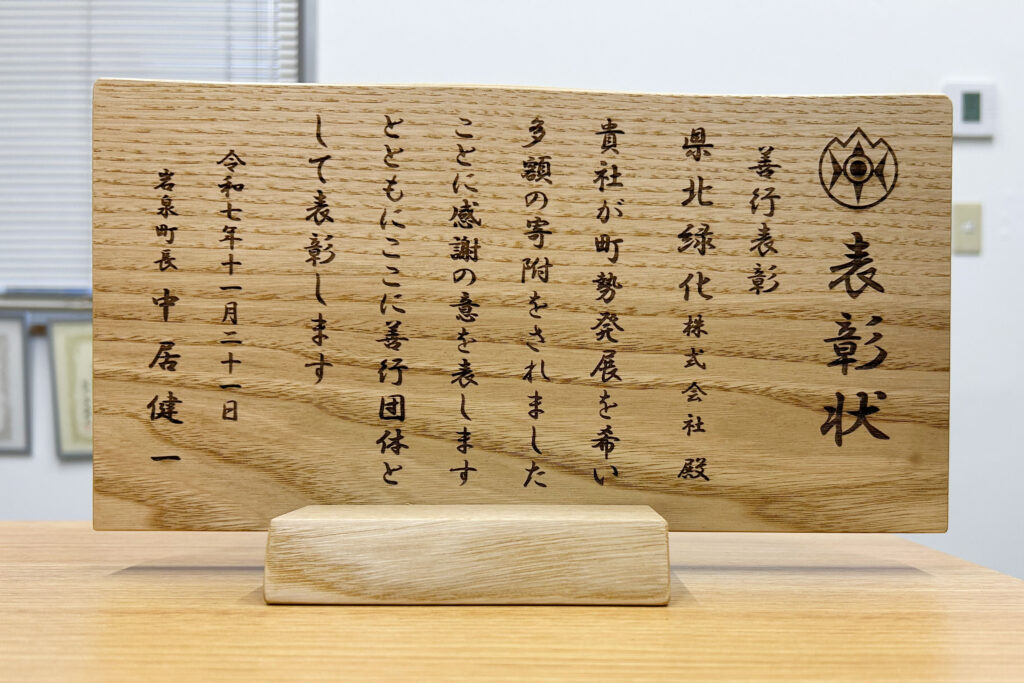 表彰状
善行表彰
県北緑化株式会社 殿
貴社が町勢発展を希い
多額の寄附をされました
ことに感謝の意を表します
とともにここに善行団体と
して表彰します
令和七年十一月二十一日
岩泉町長 中居健一